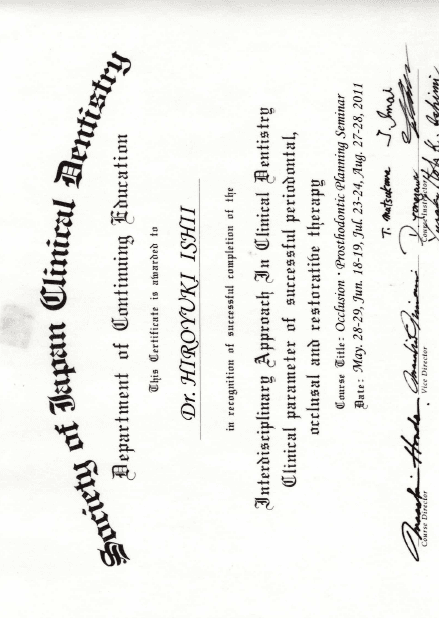 Society of Japan Clinical Dentistry
Department of Continuing Education
This Certificate is awarded to
Dr. HIROYUKI ISHII
in recognition of successful completion of the
Interdisciplinary Approach In Clinical Dentistry
Clinical parameter of successful periodontal,
occlusal and restorative therapy
Course Title: Occlusion · Prosthodontic Planning Seminar
Date: May. 28-29, Jun. 18-19, Jul. 23-24, Aug. 27-28, 2011
T. Matsukawa J. Imai
Course Director
Vice Director
Course Instructors